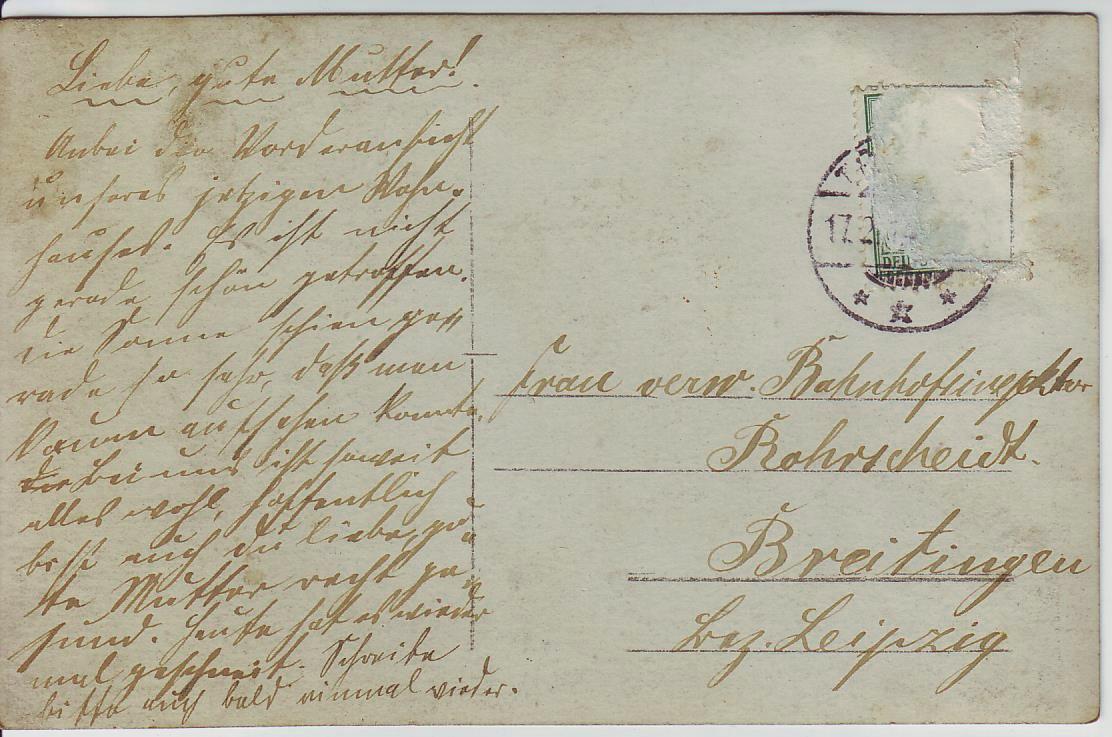 Liebe, gute Mutter!
Anbei die Vorderansicht
unseres jetzigen Wohn-
hauses. Es ist nicht
gerade schön getroffen.
die Sonne schien ge-
rade so sehr, daß man
kaum aufsehen konnte.
Bei uns ist soweit
alles wohl, hoffentlich
bist auch du liebe, gu-
te Mutter recht ge-
sund. Heute hat es wieder
mal geschneit. Schreibe
bitte auch bald einmal wieder.
17.2
Frau verw. Bahnhofsinspektor
Rohrscheidt.
Breitingen
Bez. Leipzig